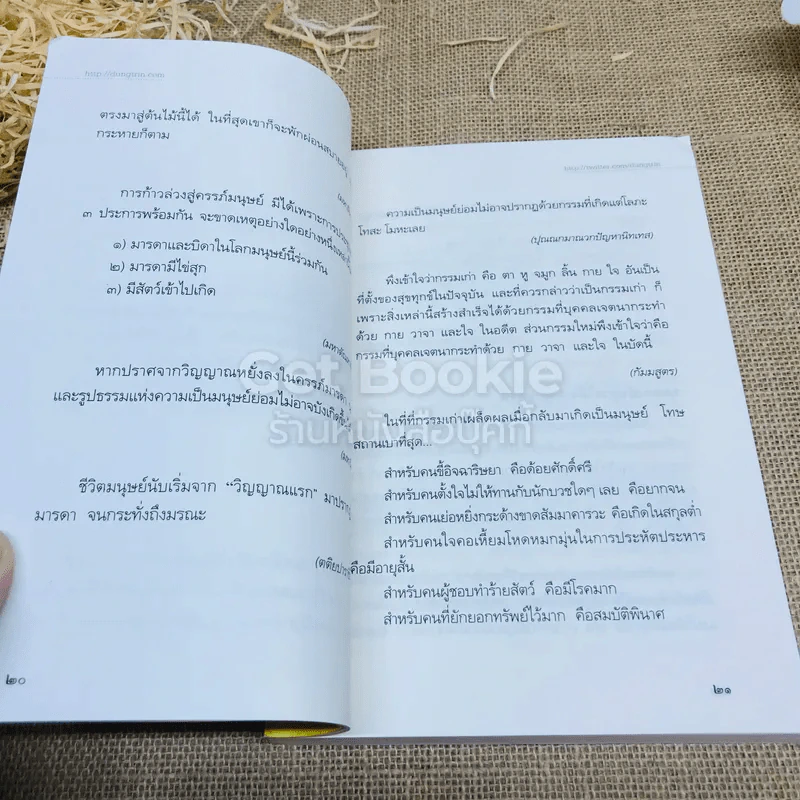 http://dungtrin.com
ตรงมาสู่ต้นไม้นี้ได้ ในที่สุดเขาก็จะพักผ่อนสบายอยู่
กระหายก็ตาม
การก้าวล่วงสู่ครรภ์มนุษย์ มีได้เพราะการประชุม
๓ ประการพร้อมกัน จะขาดเหตุอย่างใดอย่างหนึ่ง
๑) มารดาและบิดาในโลกมนุษย์นี้ร่วมกัน
๒) มารดามีไข่สุก
๓) มีสัตว์เข้าไปเกิด
หากปราศจากวิญญาณหยั่งลงในครรภ์มารดา
และรูปธรรมแห่งความเป็นมนุษย์ย่อมไม่อาจบังเกิดขึ้น
ชีวิตมนุษย์นับเริ่มจาก “วิญญาณแรก” มาปรากฏ
มารดา จนกระทั่งถึงมรณะ
๒๐
ความเป็นมนุษย์ย่อมไม่อาจปรากฏด้วยกรรมที่เกิดแต่โลภะ
โทสะ โมหะเลย
(ปุณณกมาณวกปัญหานิทเทส)
พึงเข้าใจว่ากรรมเก่า คือ ตา หู จมูก ลิ้น กาย ใจ อันเป็น
ที่ตั้งของสุขทุกข์ในปัจจุบัน และที่ควรกล่าวว่าเป็นกรรมเก่า ก็
เพราะสิ่งเหล่านี้สร้างสำเร็จได้ด้วยกรรมที่บุคคลเจตนากระทำ
ด้วย กาย วาจา และใจ ในอดีต ส่วนกรรมใหม่พึงเข้าใจว่าคือ
กรรมที่บุคคลเจตนากระทำด้วย กาย วาจา และใจ ในบัดนี้
(กัมมสูตร)
Get Bookie
ร้านหนังสือบุ๊คกี้
ในที่ที่กรรมเก่าเผล็ดผลเมื่อกลับมาเกิดเป็นมนุษย์ โทษ
สถานเบาที่สุด...
สำหรับคนขี้อิจฉาริษยา คือด้อยศักดิ์ศรี
สำหรับคนตั้งใจไม่ให้ทานกับนักบวชใดๆ เลย คือยากจน
สำหรับคนเย่อหยิ่งกระด้างขาดสัมมาคารวะ คือเกิดในสกุลต่ำ
สำหรับคนใจคอเหี้ยมโหดหมกมุ่นในการประหัตประหาร
คือมีอายุสั้น
สำหรับคนผู้ชอบทำร้ายสัตว์ คือมีโรคมาก
สำหรับคนที่ยักยอกทรัพย์ไว้มาก คือสมบัติพินาศ
๒๑